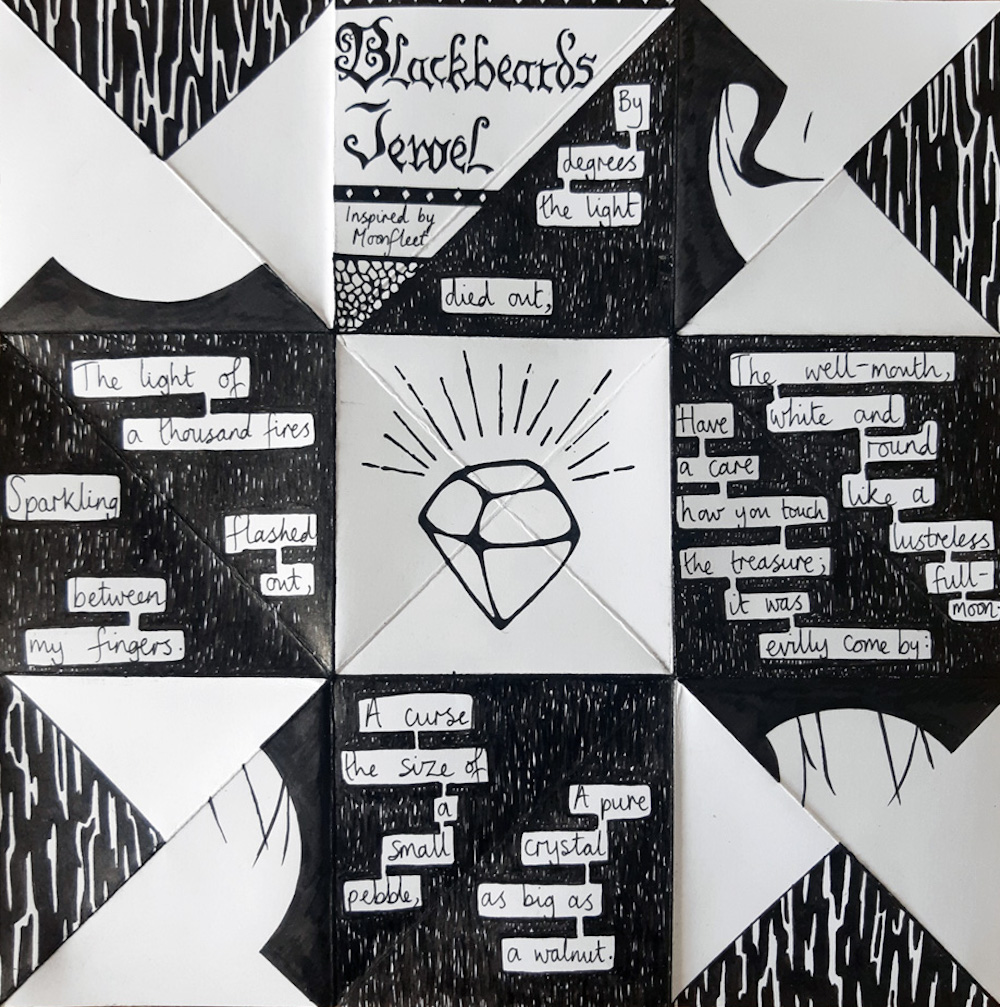 Blackbeards
Jewel
Inspired by
Moonfleet
By
degrees
the light
died out,
The light of
a thousand fires
flashed
out,
Sparkling
between
my fingers.
The well-mouth,
white and
round
like a
lustreless
full-
moon.
Have
a care
how you touch
the treasure;
it was
evilly come by.
A curse
the size of
a
small
pebble,
A pure
crystal
as big as
a walnut.